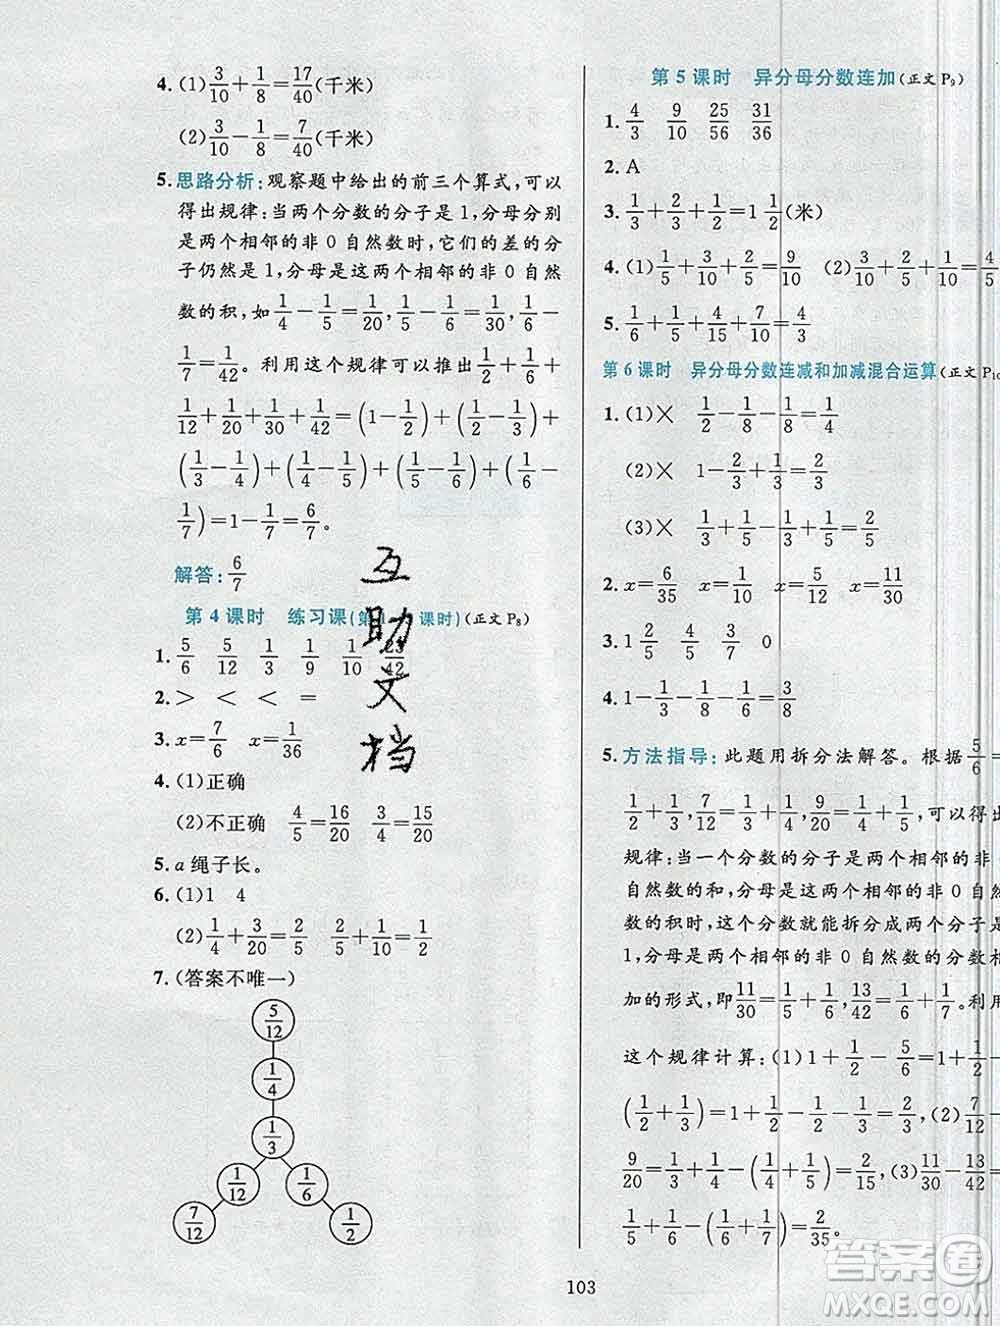 4. (1) 3/10 + 1/8 = 17/40 (千米)
(2) 3/10 − 1/8 = 7/40 (千米)
5. 思路分析: 观察题中给出的前三个算式,可以
得出规律:当两个分数的分子是 1,分母分别
是两个相邻的非 0 自然数时,它们的差的分
子仍然是 1,分母是这两个相邻的非 0 自然
数的积,如 1/4 − 1/5 = 1/20, 1/5 − 1/6 = 1/30, 1/6 −
1/7 = 1/42。利用这个规律可以推出 1/2 + 1/6 +
1/12 + 1/20 + 1/30 + 1/42 = (1 − 1/2) + (1/2 − 1/3) +
(1/3 − 1/4) + (1/4 − 1/5) + (1/5 − 1/6) + (1/6 −
1/7) = 1 − 1/7 = 6/7。
解答: 6/7
第 4 课时 练习课(第 课时)(正文 P8)
1. 5/6 5/12 1/3 1/9 1/10 23/42
2. > < < =
3. x = 7/6 x = 1/36
4. (1)正确
(2)不正确 4/5 = 16/20 3/4 = 15/20
5. a 绳子长。
6. (1)1 4
(2) 1/4 + 3/20 = 2/5 2/5 + 1/10 = 1/2
7. (答案不唯一)
5/12
1/4
1/3
1/12 1/6
7/12 1/2
互
助
文
档
第 5 课时 异分母分数连加(正文 P9)
1. 4/3 9/10 25/56 31/36
2. A
3. 1/3 + 2/3 + 1/2 = 1 1/2 (米)
4. (1) 2/5 + 3/10 + 1/5 = 9/10 (2) 3/10 + 2/5 + 1/10 = 4/5
5. 1/6 + 1/5 + 4/15 + 7/10 = 4/3
第 6 课时 异分母分数连减和加减混合运算(正文 P10
1. (1)× 1/2 − 1/8 − 1/8 = 1/4
(2)× 1 − 2/3 + 1/3 = 2/3
(3)× 1/3 + 1/5 − 1/3 + 1/5 = 2/5
2. x = 6/35 x = 5/12 x = 11/30
3. 1 4/5 4/5 3/20 0
4. 1 − 1/4 − 1/8 − 1/4 = 3/8
5. 方法指导: 此题用拆分法解答。根据 5/6 =
1/2 + 1/3, 7/12 = 1/3 + 1/4, 9/20 = 1/4 + 1/5, 可以得出
规律:当一个分数的分子是两个相邻的非 0
自然数的和,分母是这两个相邻的非 0 自然
数的积时,这个分数就能拆分成两个分子是
1,分母是这两个相邻的非 0 自然数的分数相
加的形式,即 11/30 = 1/5 + 1/6, 13/42 = 1/6 + 1/7。利用
这个规律计算:(1) 1 + 1/2 − 5/6 = 1 + 1/2 −
(1/2 + 1/3) = 1 + 1/2 − 1/2 − 1/3 = 2/3, (2) 7/12 −
9/20 = 1/3 + 1/4 − (1/4 + 1/5) = 2/15, (3) 11/30 − 13/42 =
1/5 + 1/6 − (1/6 + 1/7) = 2/35。
103
答案圈
MXQE.COM